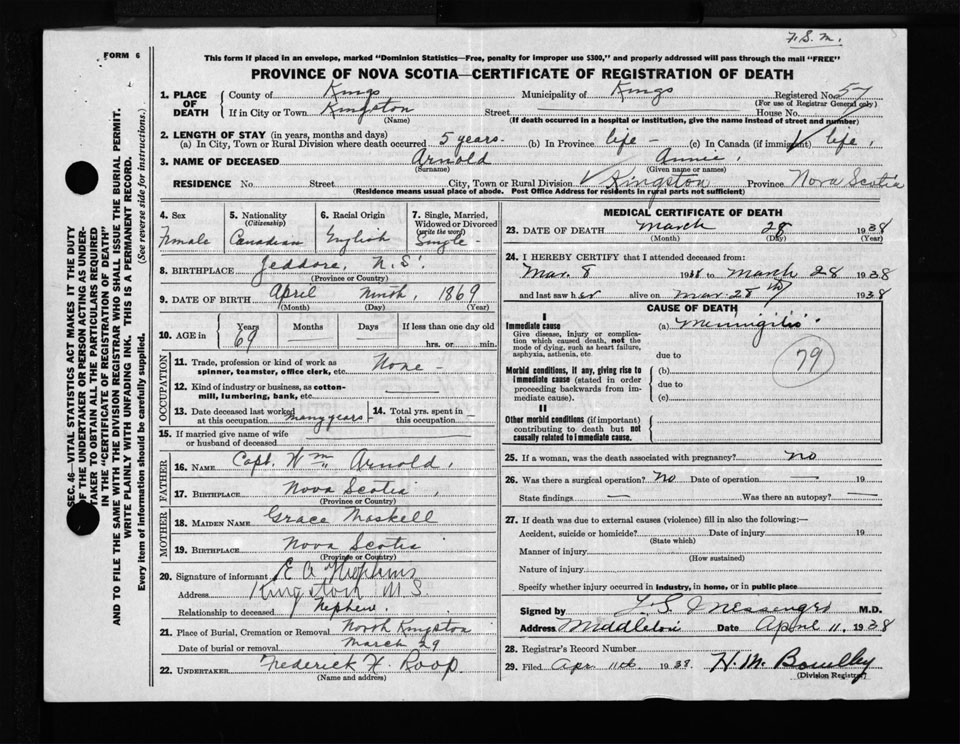 F. S. M.
FORM 6
This form if placed in an envelope, marked "Dominion Statistics—Free, penalty for improper use $300," and properly addressed will pass through the mail "FREE"
PROVINCE OF NOVA SCOTIA—CERTIFICATE OF REGISTRATION OF DEATH
1. PLACE OF DEATH
County of Kings Municipality of Kings Registered No. 57
(For use of Registrar General only)
If in City or Town Kingston Street House No.
(Name) (If death occurred in a hospital or institution, give the name instead of street and number)
2. LENGTH OF STAY (in years, months and days)
(a) In City, Town or Rural Division where death occurred 5 years. (b) In Province life - (c) In Canada (if immigrant) life.
3. NAME OF DECEASED Arnold Annie,
(Surname) (Given name or names)
RESIDENCE No. Street City, Town or Rural Division Kingston Province Nova Scotia
(Residence means usual place of abode. Post Office Address for residents in rural parts not sufficient)
4. Sex Female
5. Nationality (Citizenship) Canadian
6. Racial Origin English
7. Single, Married, Widowed or Divorced (write the word) Single -
8. BIRTHPLACE Jeddore, N.S.
(Province or Country)
9. DATE OF BIRTH April Ninth, 1869
(Month) (Day) (Year)
10. AGE in Years 69 Months — Days — If less than one day old hrs. or min.
OCCUPATION
11. Trade, profession or kind of work as spinner, teamster, office clerk, etc. None -
12. Kind of industry or business, as cotton-mill, lumbering, bank, etc.
13. Date deceased last worked at this occupation many years -
14. Total yrs. spent in this occupation —
15. If married give name of wife or husband of deceased
FATHER
16. NAME Capt. Wm Arnold,
17. BIRTHPLACE Nova Scotia,
(Province or Country)
MOTHER
18. MAIDEN NAME Grace Maskell
19. BIRTHPLACE Nova Scotia
(Province or Country)
20. Signature of informant E A Hopkins
Address Kingston N.S.
Relationship to deceased Nephew.
21. Place of Burial, Cremation or Removal North Kingston
Date of burial or removal March 29
22. UNDERTAKER Frederick H. Roop
(Name and address)
MEDICAL CERTIFICATE OF DEATH
23. DATE OF DEATH March 28 1938
(Month) (Day) (Year)
24. I HEREBY CERTIFY that I attended deceased from:
Mar. 8 1938 to March 28 1938
and last saw her alive on Mar. 28th 1938
CAUSE OF DEATH
I
Immediate cause (a) Meningitis.
Give disease, injury or complication which caused death, not the mode of dying, such as heart failure, asphyxia, asthenia, etc.
due to
79
Morbid conditions, if any, giving rise to immediate cause (stated in order proceeding backwards from immediate cause).
(b)
due to
(c)
II
Other morbid conditions (if important) contributing to death but not causally related to immediate cause.
25. If a woman, was the death associated with pregnancy? no
26. Was there a surgical operation? No Date of operation — 19
State findings — Was there an autopsy? —
27. If death was due to external causes (violence) fill in also the following:—
Accident, suicide or homicide? Date of injury 19
(State which)
Manner of injury
(How sustained)
Nature of injury
Specify whether injury occurred in industry, in home, or in public place
Signed by F. S. Messenger M.D.
Address Middleton Date April 11, 1938
28. Registrar's Record Number
29. Filed Apr 11th 1938.
(Division Registrar)
SEC. 46—VITAL STATISTICS ACT MAKES IT THE DUTY OF THE UNDERTAKER OR PERSON ACTING AS UNDERTAKER TO OBTAIN ALL THE PARTICULARS REQUIRED IN THE "CERTIFICATE OF REGISTRATION OF DEATH" AND TO FILE THE SAME WITH THE DIVISION REGISTRAR WHO SHALL ISSUE THE BURIAL PERMIT.
WRITE PLAINLY WITH UNFADING INK. THIS IS A PERMANENT RECORD.
Every item of information should be carefully supplied. (See reverse side for instructions.)